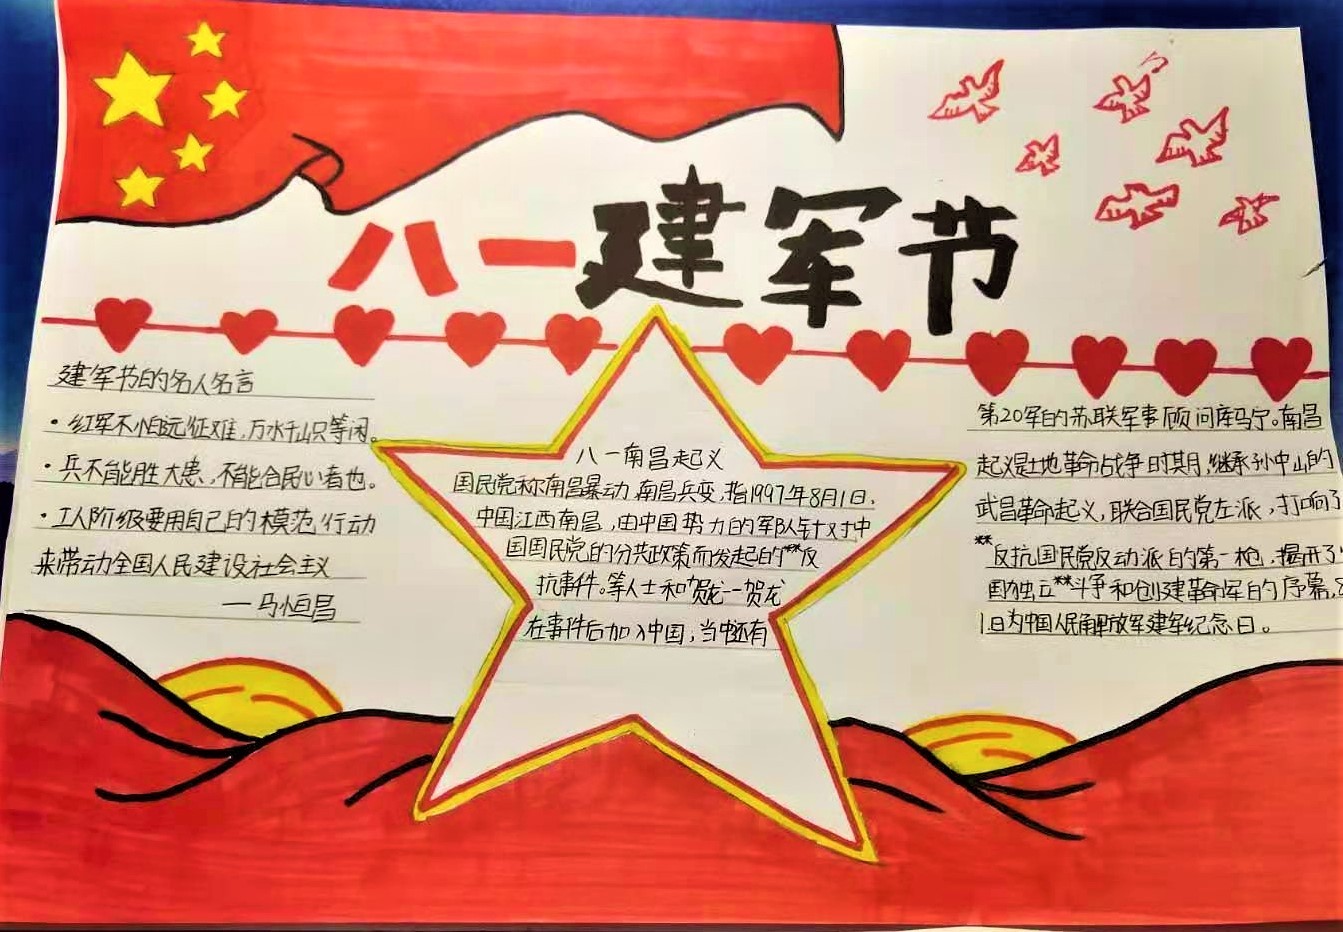 八一建军节
建军节的名人名言
·红军不怕远征难,万水千山只等闲。
·兵不能胜大患,不能合民心者也。
·工人阶级要用自己的模范行动
来带动全国人民建设社会主义
——马恒昌
八一南昌起义
国民党称南昌暴动,南昌兵变,指1997年8月1日,
中国江西南昌,由中国势力的军队针对中
国国民党的分共政策而发起的**反
抗事件。等人士和贺龙--贺龙
在事件后加入中国,当中还有
第20军的苏联军事顾问库马宁。南昌
起义是土地革命战争时期,继承孙中山的
武昌革命起义,联合国民党左派,打响了
**反抗国民党反动派的第一枪,揭开了
国独立**斗争和创建革命军的序幕,
1日为中国人民解放军建军纪念日。